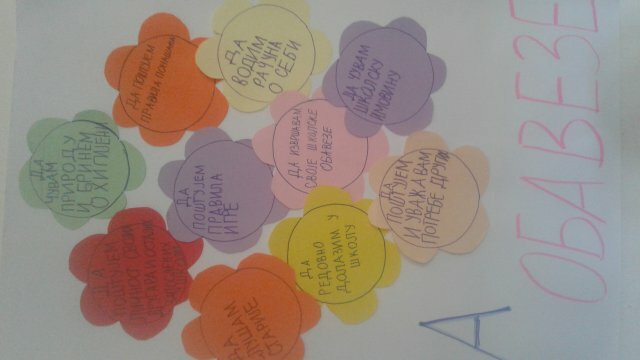 ДА ПОШТУЈЕМ
ПРАВИЛА ПОНАШАЊА
ДА
ВОДИМ
РАЧУНА
О СЕБИ
ДА ЧУВАМ
ШКОЛСКУ
ИМОВИНУ
ДА
ЧУВАМ
ПРИРОДУ
И БРИНЕМ
О ХИГИЈЕНИ
ДА
ПОШТУЈЕМ
ПРАВИЛА
ИГРЕ
ДА ИЗВРШАВАМ
СВОЈЕ ШКОЛСКЕ
ОБАВЕЗЕ
ДА
ПОШТУЈЕМ
И УВАЖАВАМ
ПОТРЕБЕ ДРУГИХ
ДА
ПОШТУЈЕМ
ДА
РЕДОВНО
ДОЛАЗИМ У
ШКОЛУ
ДА
СЛУШАМ
СТАРИЈЕ
А
ОБАВЕЗЕ